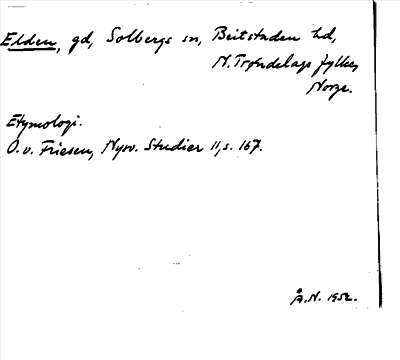 Elden, gd, Solbergs sn, Beitstaden hd,
N. Trøndelags fylke,
Norge.
Etymologi.
O. v. Friesen, Nysv. Studier 11, s. 167.
Å.N. 1952.